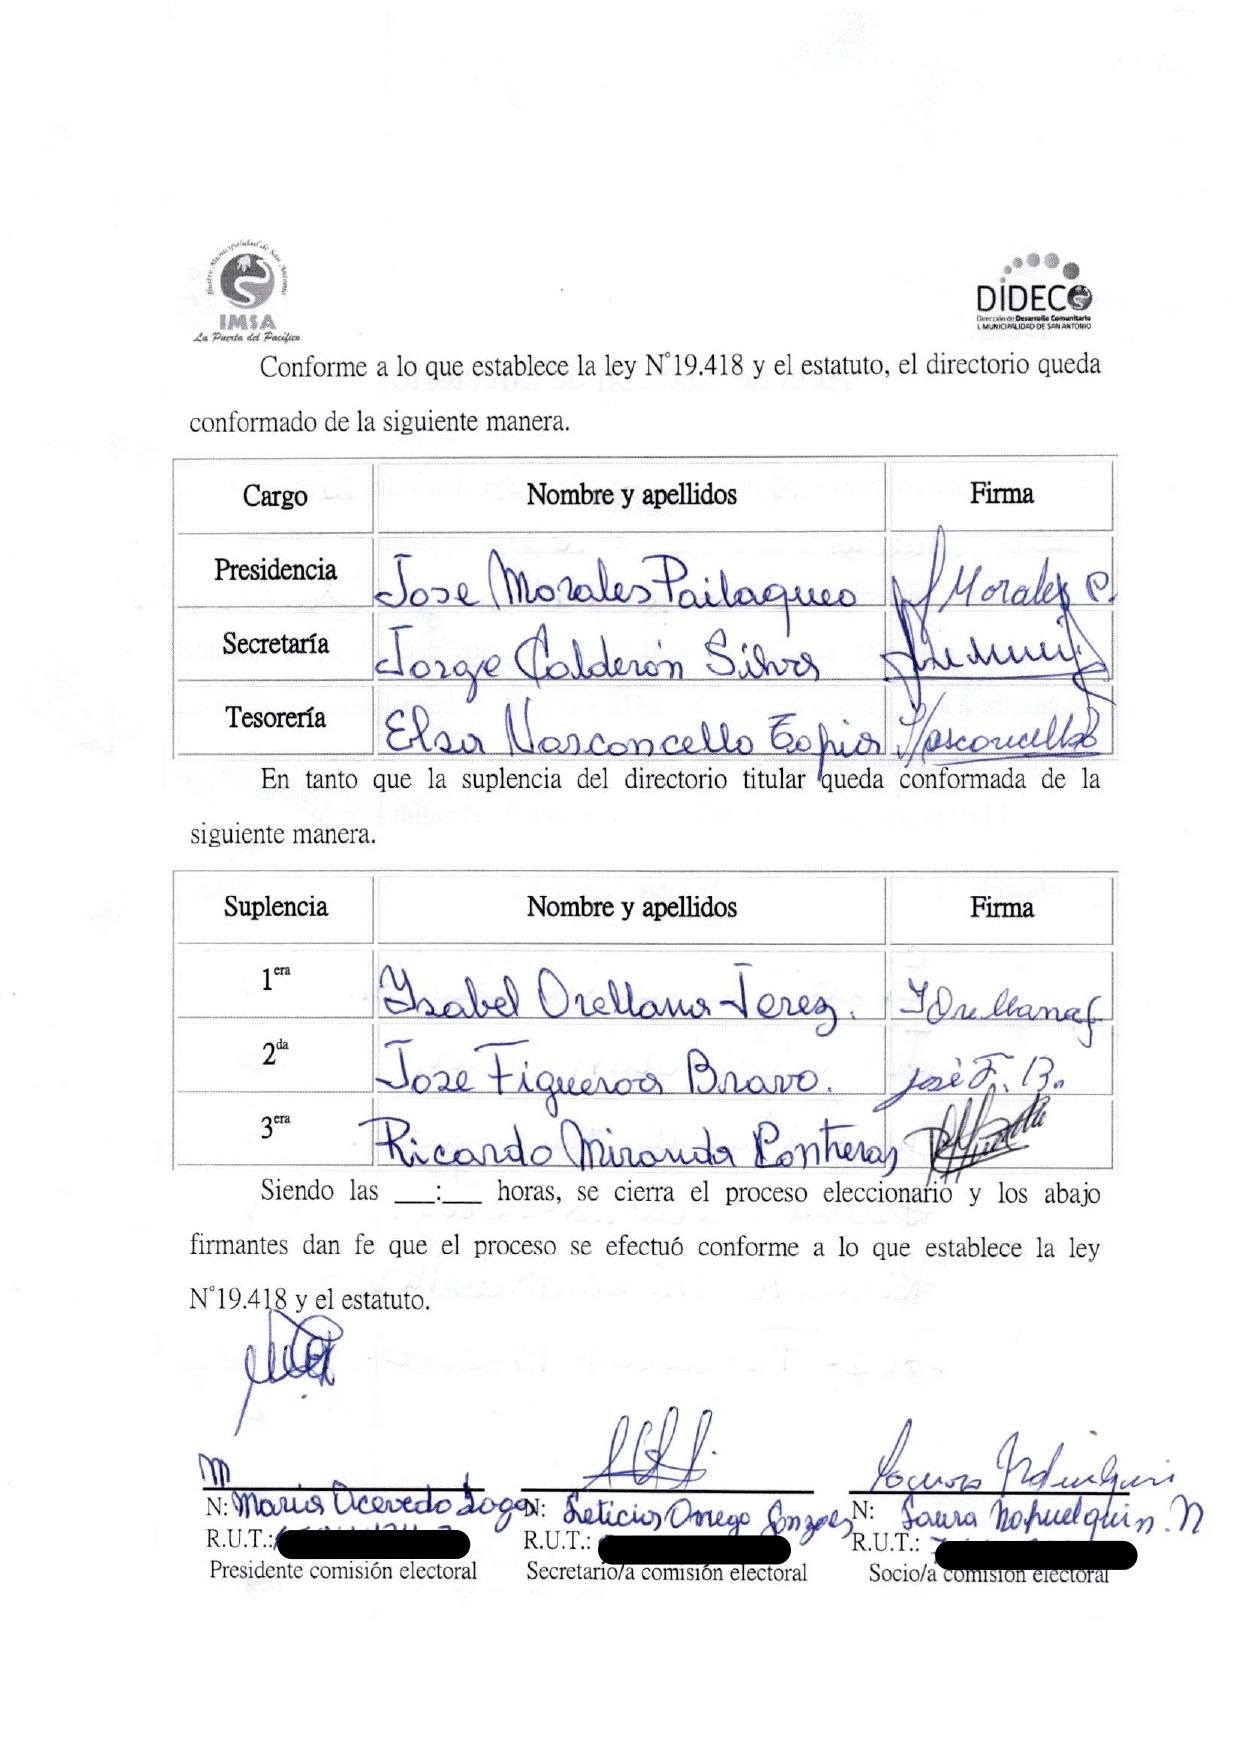 Ilustre Municipalidad de San Antonio
IMSA
La Puerta del Pacífico
DIDECO
Dirección de Desarrollo Comunitario
I. MUNICIPALIDAD DE SAN ANTONIO
Conforme a lo que establece la ley N°19.418 y el estatuto, el directorio queda
conformado de la siguiente manera.
Cargo Nombre y apellidos Firma
Presidencia Jose Morales Pailaqueo J Morales P.
Secretaría Jorge Calderon Silva
Tesorería Elsa Vasconcello Tapia Vasconcello
En tanto que la suplencia del directorio titular queda conformada de la
siguiente manera.
Suplencia Nombre y apellidos Firma
1era Ysabel Orellana Jerez. YOrellanaJ
2da Jose Figueroa Bravo. José F. B.
3era Ricardo Miranda Contreras
Siendo las ___:___ horas, se cierra el proceso eleccionario y los abajo
firmantes dan fe que el proceso se efectuó conforme a lo que establece la ley
N°19.418 y el estatuto.
N: Maria Acevedo N: Leticia Orrego N: Laura Nahuelquin. N
R.U.T.: R.U.T.: R.U.T.:
Presidente comisión electoral Secretario/a comisión electoral Socio/a comisión electoral